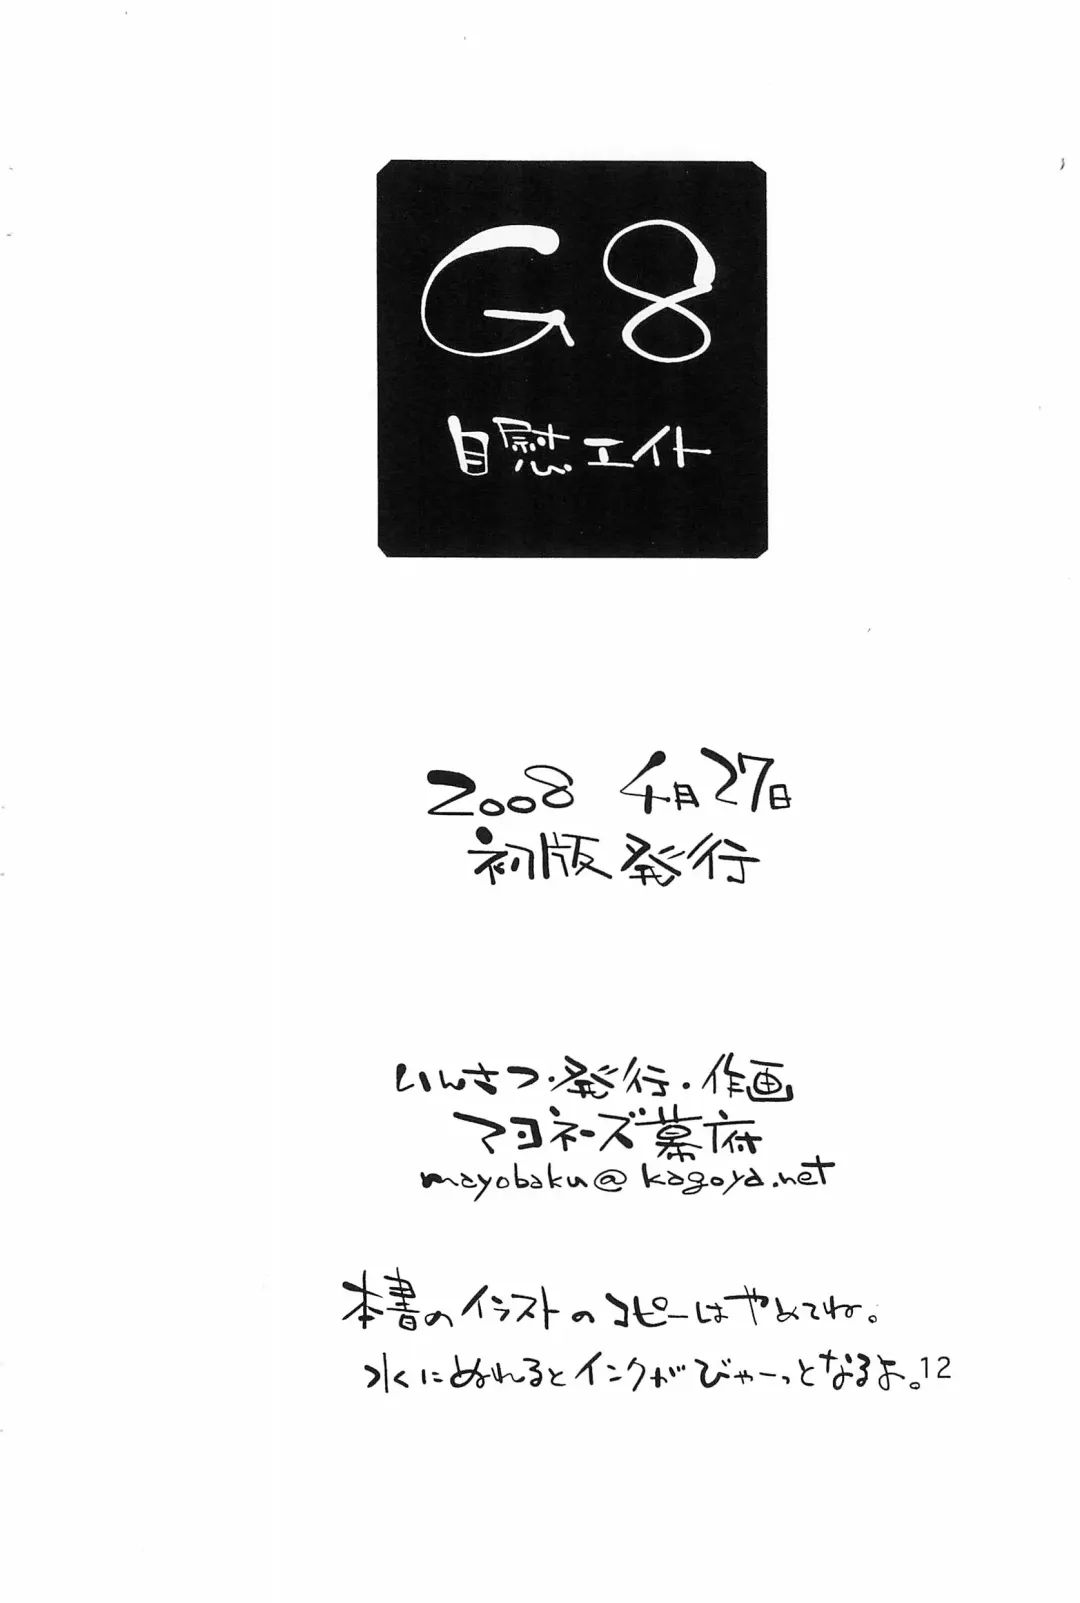 G8
自慰エイト
2008 4月27日
初版発行
いんさつ・発行・作画
マヨネーズ幕府
mayobaku@kagoya.net
本書のイラストのコピーはやめてね。
水にぬれるとインクがびゃーっとなるよ。12